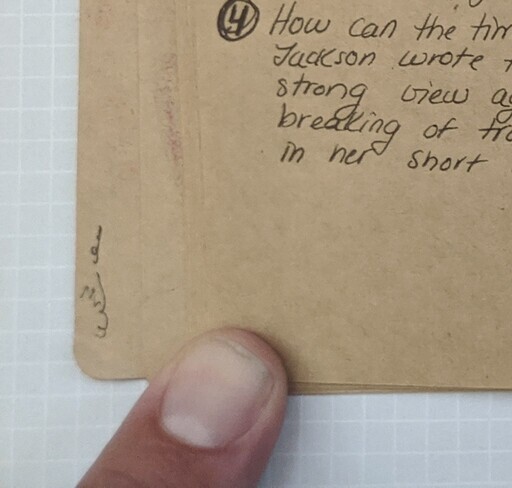 ④ How can the tim
Jackson wrote t
strong view ag
breaking of tra
in her short